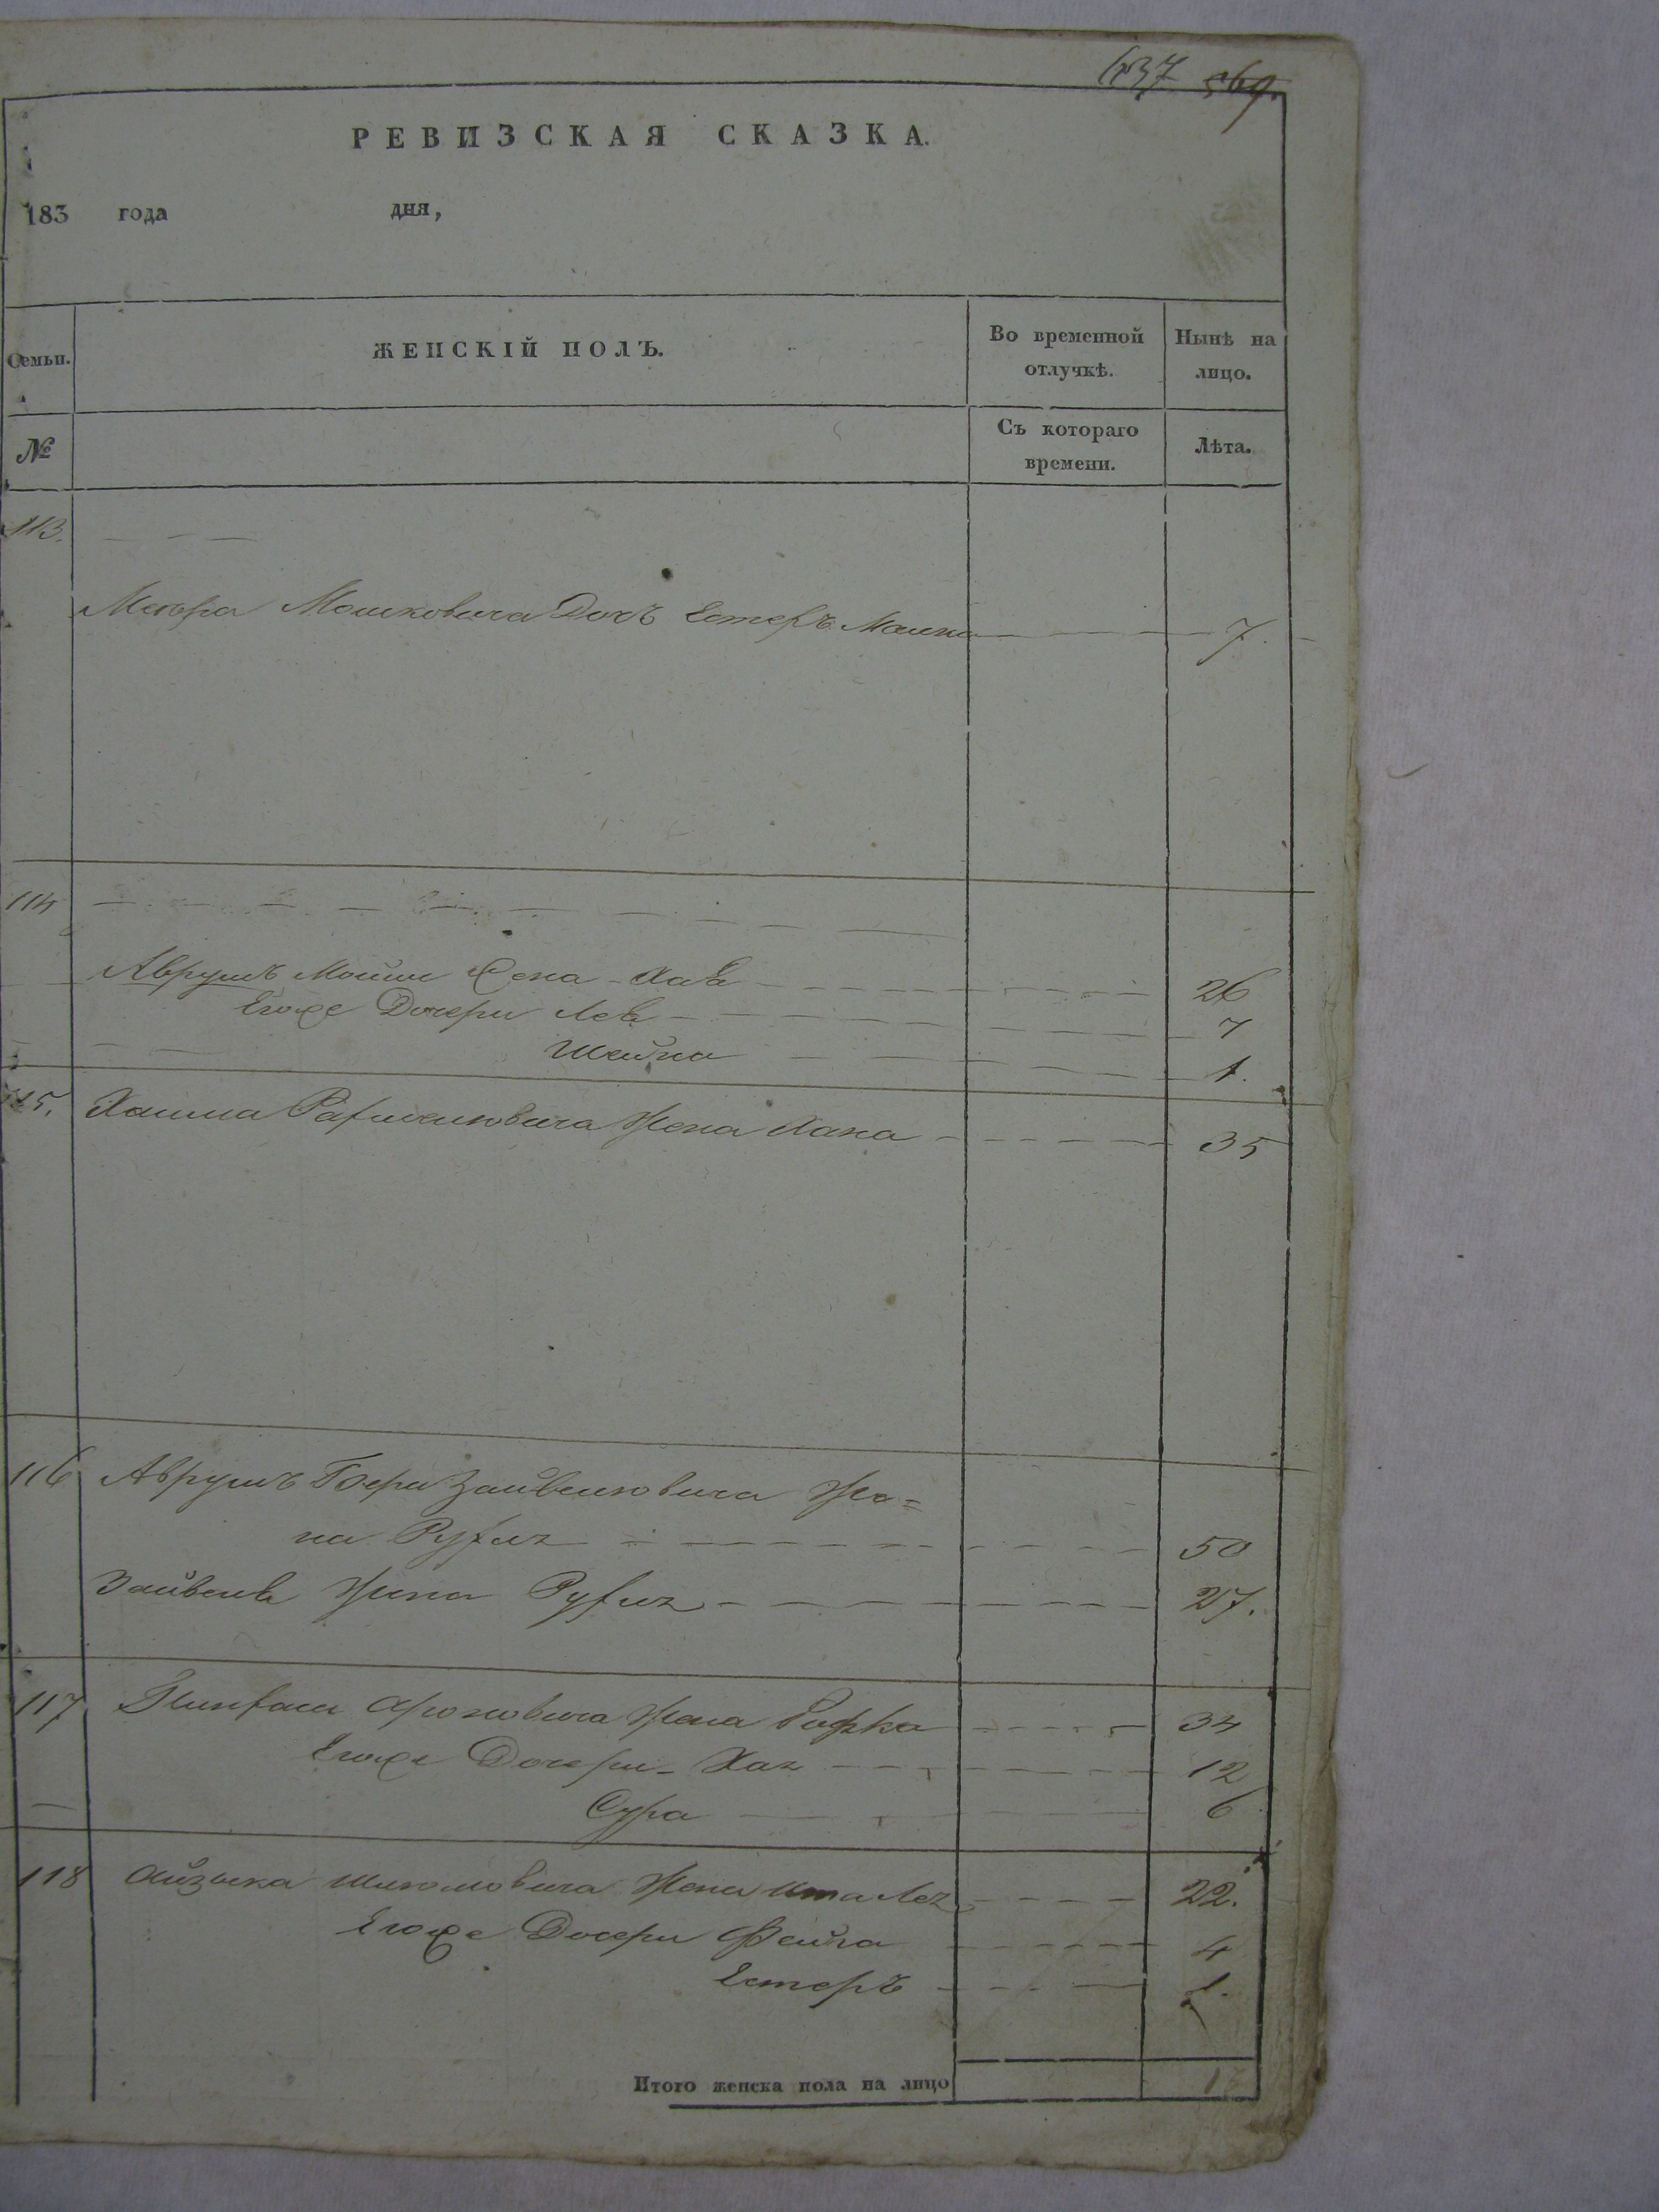 637 569.
РЕВИЗСКАЯ СКАЗКА.
183 года дня,
Семьи. ЖЕНСКІЙ ПОЛЪ. Во временной отлучкѣ. Нынѣ на лицо.
№ Съ котораго времени. Лѣта.
113. — — —
Меера Мошковича Дочь Естеръ Малка 7.
114 — — —
Аврумъ Мойши Жена Хая 26
Егоже Дочери Лея 7
Шейна 1.
115. Хаима Рахмелиовича Жена Хана 35
116 Аврумъ Бера Зайвеліовича Же=
на Рухля 50
Зайвеля Жена Рухля 27.
117 Пинхаса Ароновича Жена Рифка 34
Егоже Дочери Хая 12
Сура 6
118 Айзыка Шліомовича Жена Ита Лея 22.
Егоже Дочери Фейга 4
Естеръ 1.
Итого женска пола на лицо